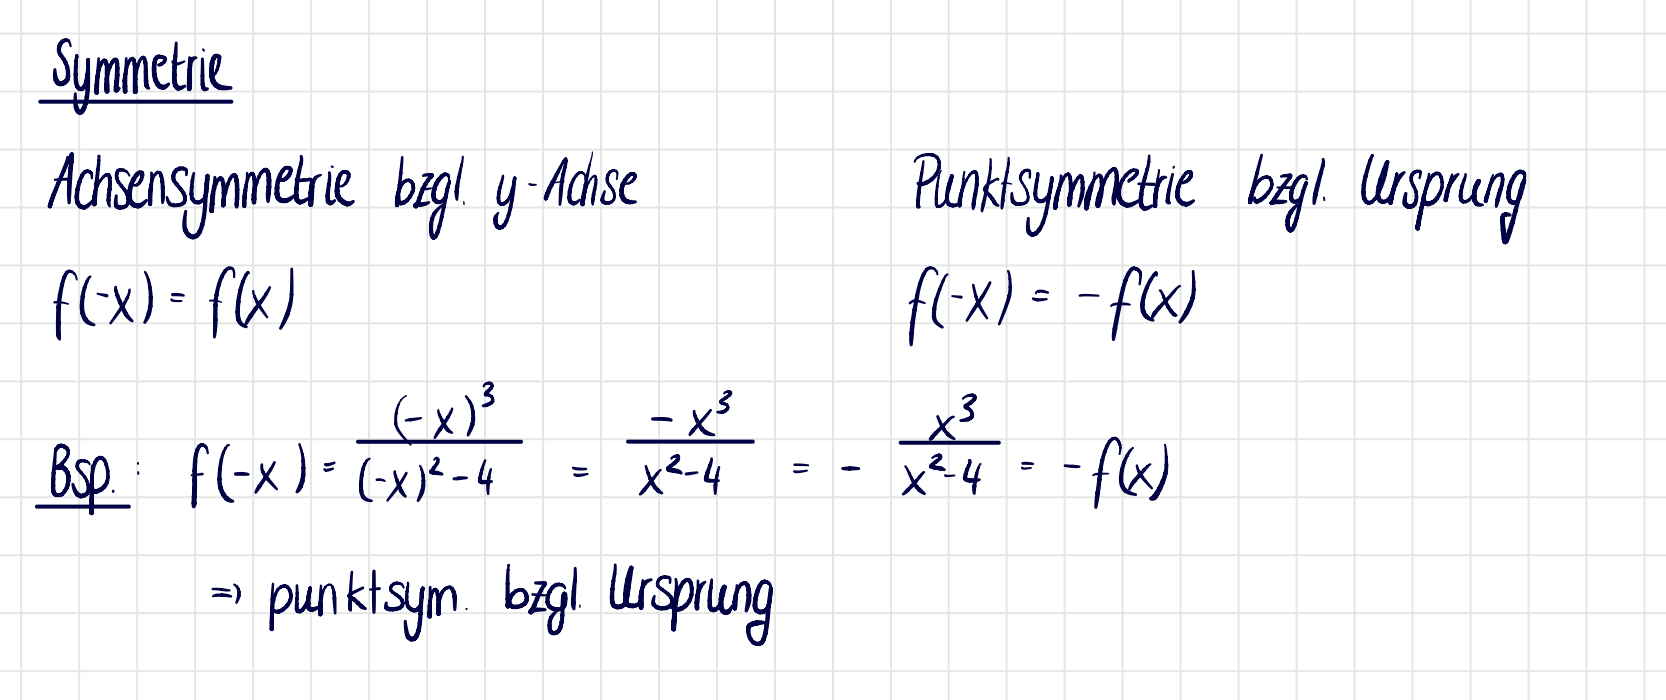 Symmetrie
Achsensymmetrie bzgl. y-Achse Punktsymmetrie bzgl. Ursprung
f(-x) = f(x) f(-x) = -f(x)
Bsp.: f(-x) = (-x)³/((-x)²-4) = -x³/(x²-4) = - x³/(x²-4) = -f(x)
=> punktsym. bzgl. Ursprung